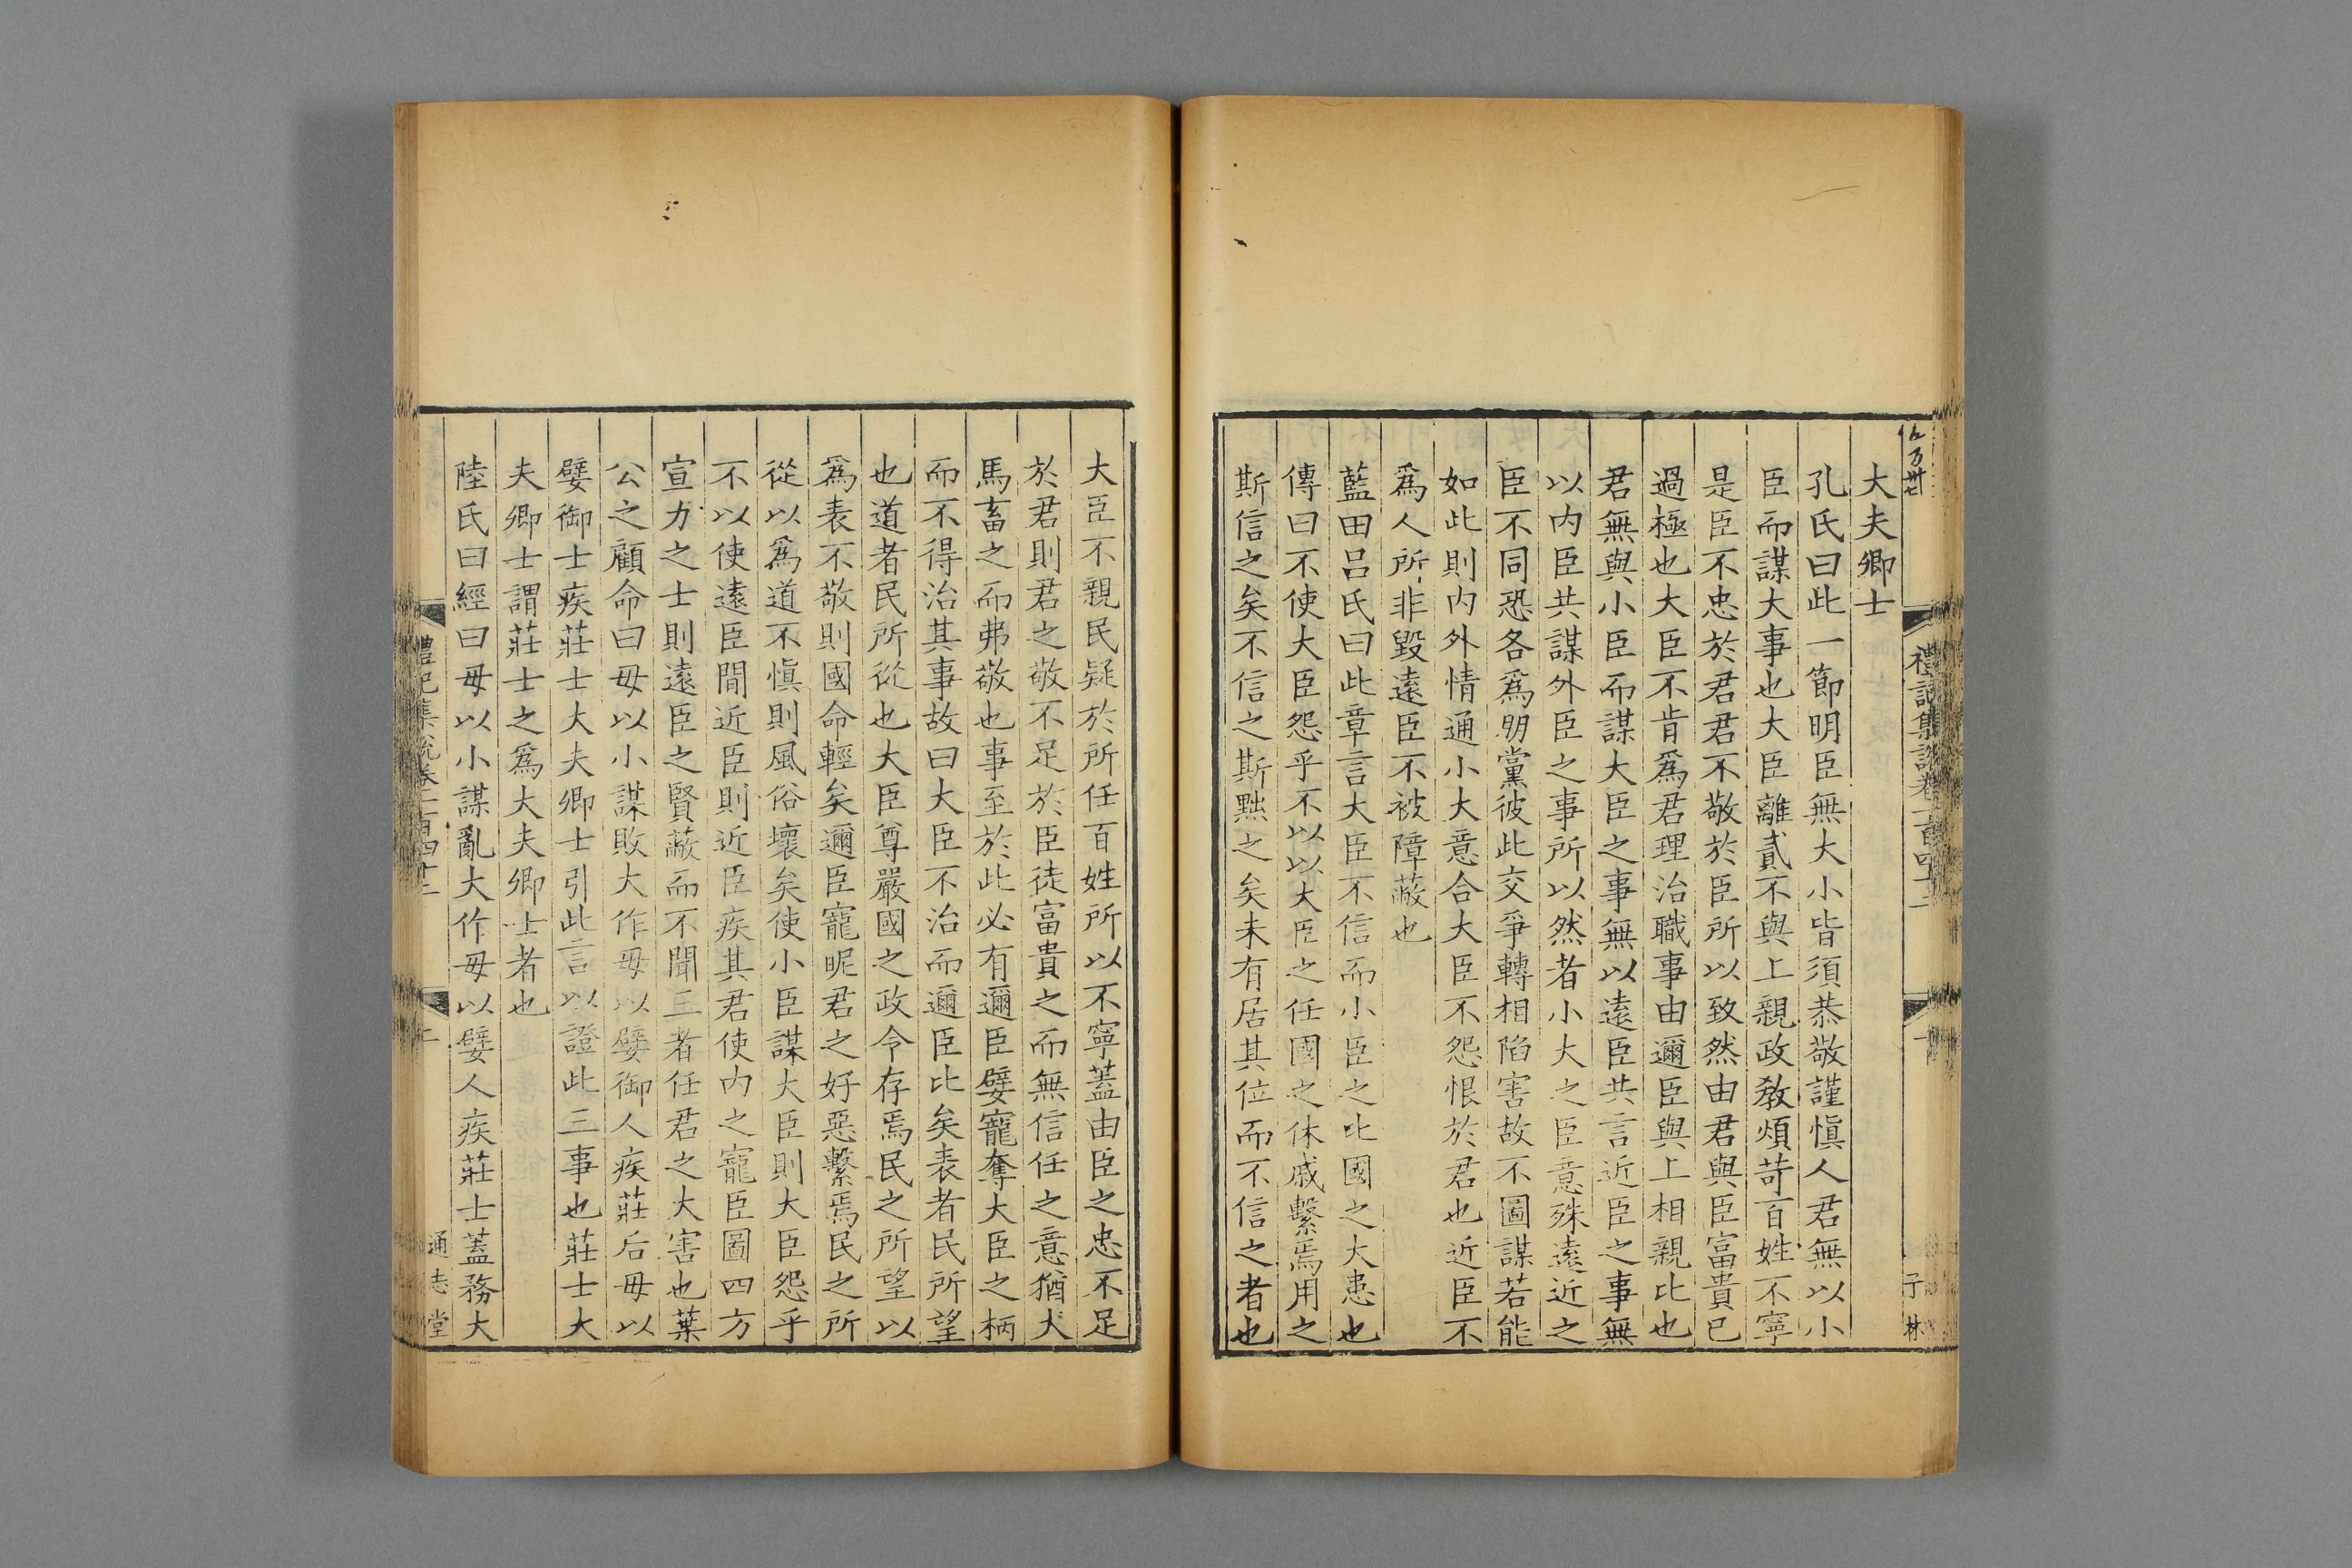 大夫卿士
孔氏曰此一節明臣無大小皆須恭敬謹慎人君無以小
臣而謀大事也大臣離貳不與上親政教煩苛百姓不寧
是臣不忠於君君不敬於臣所以致然由君與臣富貴已
過極也大臣不肯爲君理治職事由邇臣與上相親比也
君無與小臣而謀大臣之事無以遠臣共言近臣之事無
以内臣共謀外臣之事所以然者小大之臣意殊遠近之
臣不同恐各爲朋黨彼此交爭轉相陷害故不圖謀若能
如此則内外情通小大意合大臣不怨恨於君也近臣不
爲人所非毀遠臣不被障蔽也
藍田呂氏曰此章言大臣不信而小臣之比國之大患也
傳曰不使大臣怨乎不以以大臣之任國之休戚繫焉用之
斯信之矣不信之斯黜之矣未有居其位而不信之者也
禮記集說卷一百四十二
一
于林
大臣不親民疑於所任百姓所以不寧蓋由臣之忠不足
於君則君之敬不足於臣徒富貴之而無信任之意猶犬
馬畜之而弗敬也事至於此必有邇臣嬖寵奪大臣之柄
而不得治其事故曰大臣不治而邇臣比矣表者民所望
也道者民所從也大臣尊嚴國之政令存焉民之所望以
爲表不敬則國命輕矣邇臣寵昵君之好惡繫焉民之所
從以爲道不慎則風俗壞矣使小臣謀大臣則大臣怨乎
不以使遠臣間近臣則近臣疾其君使内之寵臣圖四方
宣力之士則遠臣之賢蔽而不聞三者任君之大害也葉
公之顧命曰毋以小謀敗大作毋以嬖御人疾莊后毋以
嬖御士疾莊士大夫卿士引此言以證此三事也莊士大
夫卿士謂莊士之爲大夫卿士者也
陸氏曰經曰毋以小謀亂大作毋以嬖人疾莊士蓋務大
禮記集說卷一百四十二
二
通志堂